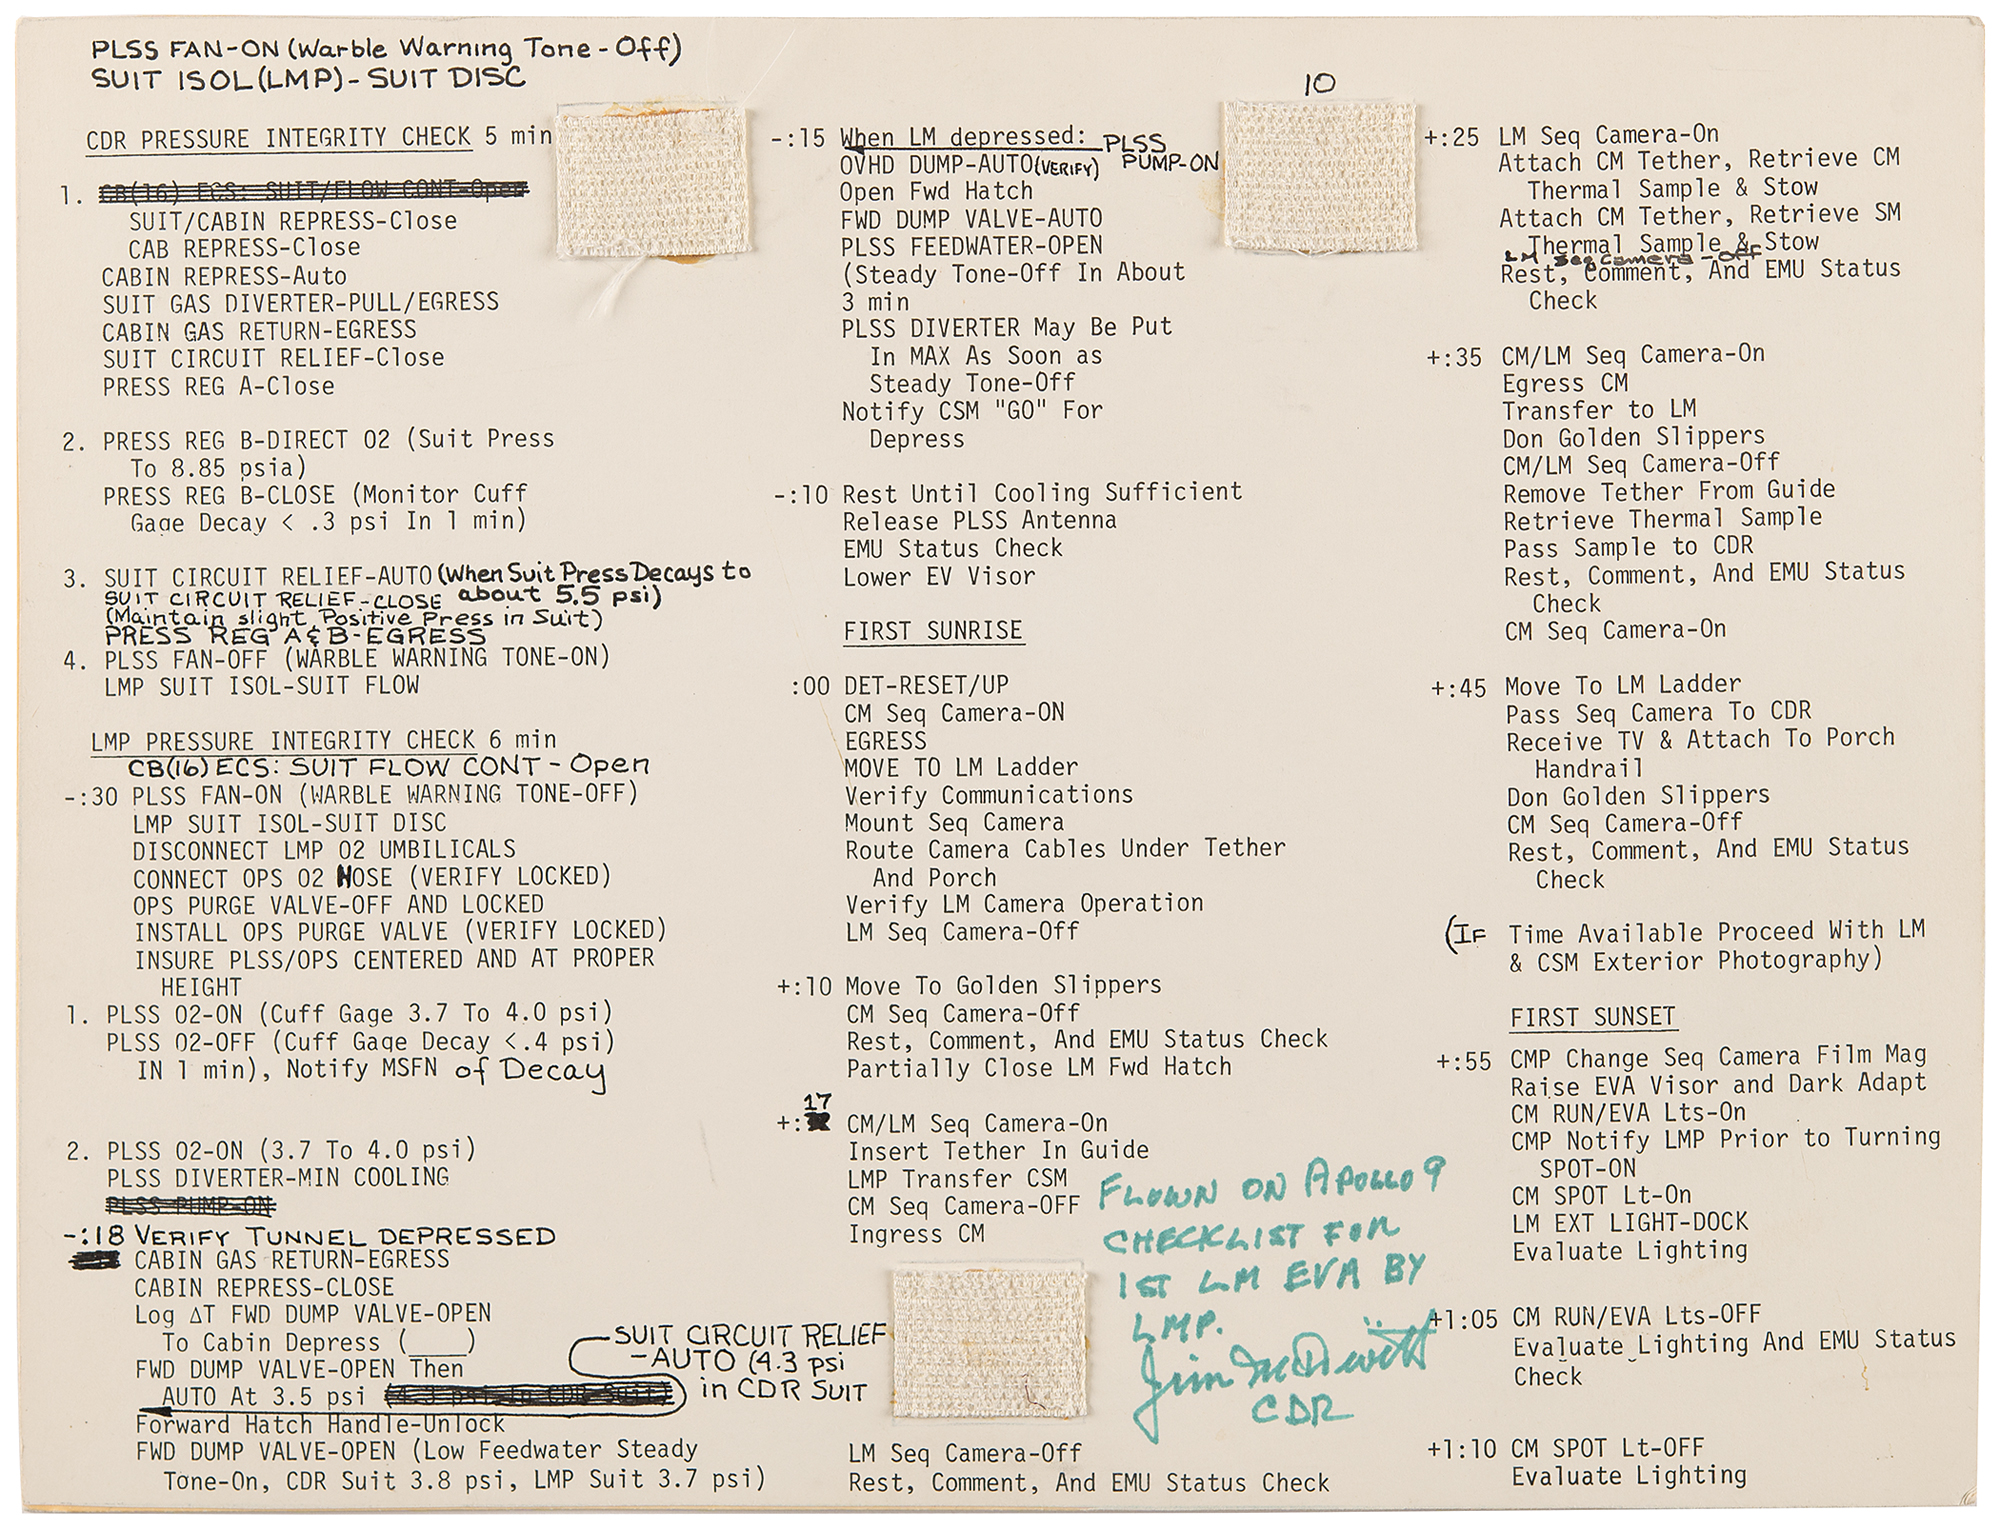 PLSS FAN-ON (Warble Warning Tone - Off)
SUIT ISOL (LMP) - SUIT DISC
CDR PRESSURE INTEGRITY CHECK 5 min
1. CB(16) ECS: SUIT/FLOW CONT-Open
SUIT/CABIN REPRESS-Close
CAB REPRESS-Close
CABIN REPRESS-Auto
SUIT GAS DIVERTER-PULL/EGRESS
CABIN GAS RETURN-EGRESS
SUIT CIRCUIT RELIEF-Close
PRESS REG A-Close
2. PRESS REG B-DIRECT O2 (Suit Press
To 8.85 psia)
PRESS REG B-CLOSE (Monitor Cuff
Gage Decay < .3 psi In 1 min)
3. SUIT CIRCUIT RELIEF-AUTO (When Suit Press Decays to
SUIT CIRCUIT RELIEF-CLOSE about 5.5 psi)
(Maintain slight Positive Press in Suit)
PRESS REG A & B - EGRESS
4. PLSS FAN-OFF (WARBLE WARNING TONE-ON)
LMP SUIT ISOL-SUIT FLOW
LMP PRESSURE INTEGRITY CHECK 6 min
CB(16) ECS: SUIT FLOW CONT - Open
-:30 PLSS FAN-ON (WARBLE WARNING TONE-OFF)
LMP SUIT ISOL-SUIT DISC
DISCONNECT LMP O2 UMBILICALS
CONNECT OPS O2 HOSE (VERIFY LOCKED)
OPS PURGE VALVE-OFF AND LOCKED
INSTALL OPS PURGE VALVE (VERIFY LOCKED)
INSURE PLSS/OPS CENTERED AND AT PROPER
HEIGHT
1. PLSS O2-ON (Cuff Gage 3.7 To 4.0 psi)
PLSS O2-OFF (Cuff Gage Decay <.4 psi)
IN 1 min), Notify MSFN of Decay
2. PLSS O2-ON (3.7 To 4.0 psi)
PLSS DIVERTER-MIN COOLING
PLSS PUMP-ON
-:18 VERIFY TUNNEL DEPRESSED
CABIN GAS RETURN-EGRESS
CABIN REPRESS-CLOSE
Log ΔT FWD DUMP VALVE-OPEN
To Cabin Depress (____)
FWD DUMP VALVE-OPEN Then
AUTO At 3.5 psi (4.3 psi in CDR Suit)
SUIT CIRCUIT RELIEF
-AUTO (4.3 psi
in CDR SUIT
Forward Hatch Handle-Unlock
FWD DUMP VALVE-OPEN (Low Feedwater Steady
Tone-On, CDR Suit 3.8 psi, LMP Suit 3.7 psi)
-:15 When LM depressed: PLSS
PUMP-ON
OVHD DUMP-AUTO (VERIFY)
Open Fwd Hatch
FWD DUMP VALVE-AUTO
PLSS FEEDWATER-OPEN
(Steady Tone-Off In About
3 min
PLSS DIVERTER May Be Put
In MAX As Soon as
Steady Tone-Off
Notify CSM "GO" For
Depress
-:10 Rest Until Cooling Sufficient
Release PLSS Antenna
EMU Status Check
Lower EV Visor
FIRST SUNRISE
:00 DET-RESET/UP
CM Seq Camera-ON
EGRESS
MOVE TO LM Ladder
Verify Communications
Mount Seq Camera
Route Camera Cables Under Tether
And Porch
Verify LM Camera Operation
LM Seq Camera-Off
+:10 Move To Golden Slippers
CM Seq Camera-Off
Rest, Comment, And EMU Status Check
Partially Close LM Fwd Hatch
+:17 CM/LM Seq Camera-On
Insert Tether In Guide
LMP Transfer CSM
CM Seq Camera-OFF
Ingress CM
LM Seq Camera-Off
Rest, Comment, And EMU Status Check
FLOWN ON APOLLO 9
CHECKLIST FOR
1ST LM EVA BY
LMP.
Jim McDivitt
CDR
10
+:25 LM Seq Camera-On
Attach CM Tether, Retrieve CM
Thermal Sample & Stow
Attach CM Tether, Retrieve SM
Thermal Sample & Stow
LM Seq Camera - off
Rest, Comment, And EMU Status
Check
+:35 CM/LM Seq Camera-On
Egress CM
Transfer to LM
Don Golden Slippers
CM/LM Seq Camera-Off
Remove Tether From Guide
Retrieve Thermal Sample
Pass Sample to CDR
Rest, Comment, And EMU Status
Check
CM Seq Camera-On
+:45 Move To LM Ladder
Pass Seq Camera To CDR
Receive TV & Attach To Porch
Handrail
Don Golden Slippers
CM Seq Camera-Off
Rest, Comment, And EMU Status
Check
(IF Time Available Proceed With LM
& CSM Exterior Photography)
FIRST SUNSET
+:55 CMP Change Seq Camera Film Mag
Raise EVA Visor and Dark Adapt
CM RUN/EVA Lts-On
CMP Notify LMP Prior to Turning
SPOT-ON
CM SPOT Lt-On
LM EXT LIGHT-DOCK
Evaluate Lighting
+1:05 CM RUN/EVA Lts-OFF
Evaluate Lighting And EMU Status
Check
+1:10 CM SPOT Lt-OFF
Evaluate Lighting